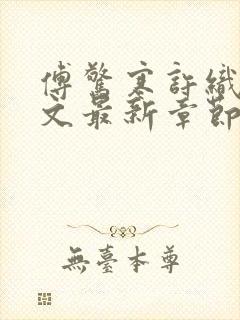 傅驚寒許織
文最新章節
無臺本尊